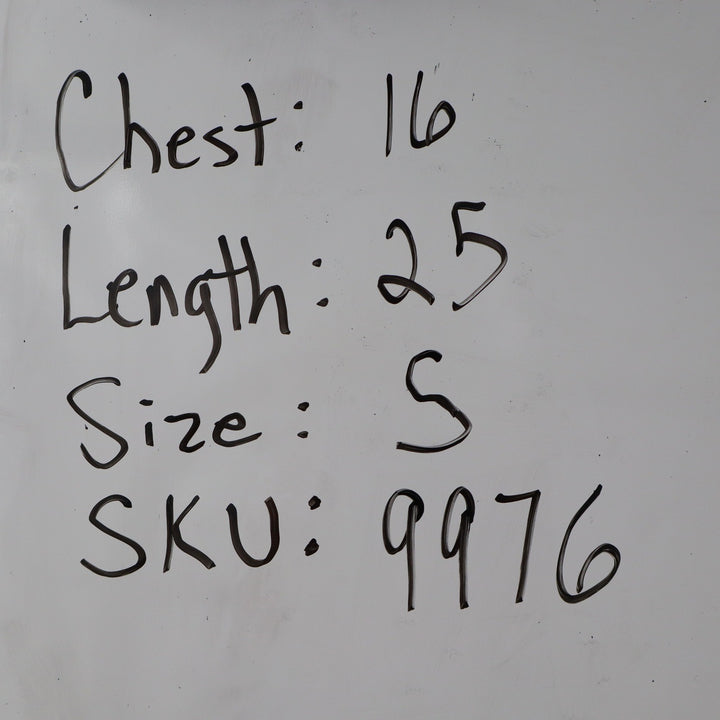 Chest: 16
Length: 25
Size: S
SKU: 9976